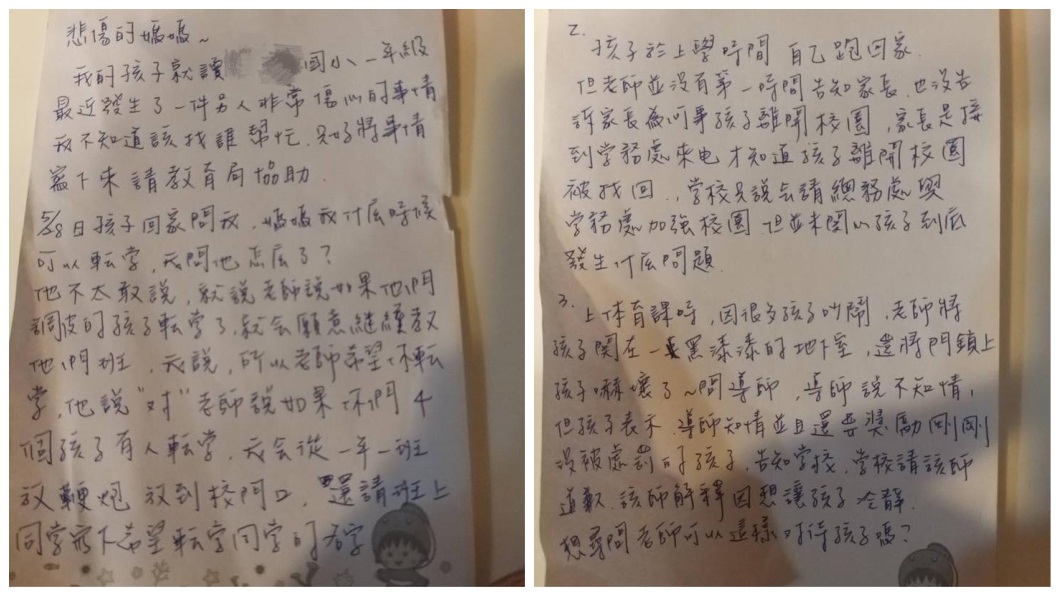 悲傷的媽媽~
我的孩子就讀 國小一年級
最近發生了一件另人非常傷心的事情
我不知道該找誰幫忙.只好將事情
寫下來請教育局協助.
5/28日孩子回家問我,媽媽我什麼時候
可以転学,我問他怎麼了?
他不太敢說,就說老師說如果他們
調皮的孩子転学了,就会願意継續教
他們班,我說,所以老師希望你転
学,他說"对"老師說如果你們4
個孩子有人転学,我会從一年一班
放鞭炮放到校門口,還請班上
同学寫下希望転学同学的名字
2.
孩子於上學時間 自己跑回家.
但老師並沒有第一時間告知家長,也沒告
訴家長為何事孩子離開校園,家長是接
到学務處來电才知道孩子離開校園
被找回.,学校只說会請總務處與
学務處加強校園 但並未関心孩子到底
發生什麼問題.
3.上体育課時,因很多孩子吵鬧,老師將
孩子関在一黑漆漆的地下室,還將門鎖上
孩子嚇壞了~問導師,導師說不知情,
但孩子表示.導師知情並且還要獎勵剛剛
沒被處罰的孩子,告知学校,学校請該師
道歉.該師解釋因想讓孩子冷靜.
想尋問老師可以這樣对待孩子嗎?